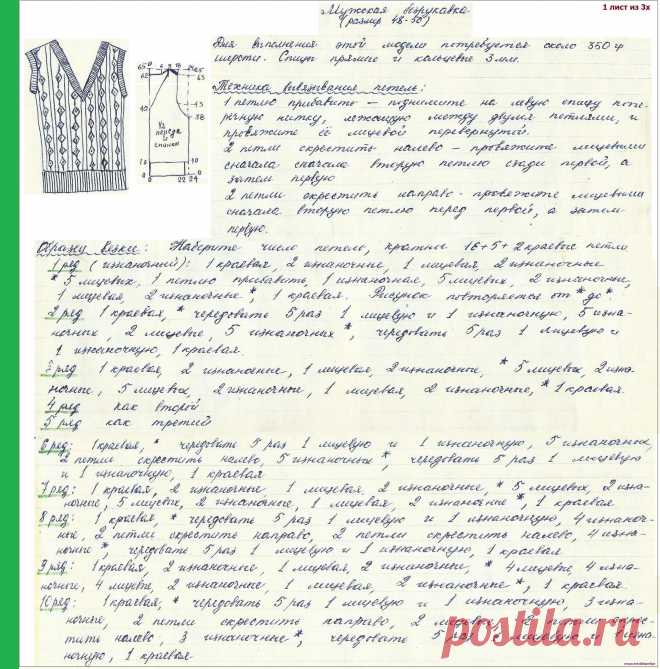 Мужская безрукавка
(размер 48-50)
1 лист из 3х
Для выполнения этой модели потребуется около 350 г
шерсти. Спицы прямые и кольцевые 3 мм.
Техника вывязывания петель:
1 петлю прибавить – поднимите на левую спицу попе-
речную нитку, лежащую между двумя петлями, и
провяжите её лицевой перевернутой.
2 петли скрестить налево – провяжите лицевыми
сначала сначала вторую петлю сзади первой, а
затем первую
2 петли скрестить направо – провяжите лицевыми
сначала вторую петлю перед первой, а затем
первую.
1/2 переда и спинки
Образец вязки: Наберите число петель, кратны 16+5+2 краевые петли
1 ряд (изнаночный): 1 краевая, 2 изнаночные, 1 лицевая, 2 изнаночные
* 5 лицевых, 1 петлю прибавить, 1 изнаночная, 5 лицевых, 2 изнаночные,
1 лицевая, 2 изнаночные *, 1 краевая. Рисунок повторяется от * до *.
2 ряд 1 краевая, * чередовать 5 раз 1 лицевую и 1 изнаночную, 5 изна-
ночных, 2 лицевые, 5 изнаночных *, чередовать 5 раз 1 лицевую и
1 изнаночную, 1 краевая.
3 ряд 1 краевая, 2 изнаночные, 1 лицевая, 2 изнаночные, * 5 лицевых, 2 изна-
ночные, 5 лицевых, 2 изнаночные, 1 лицевая, 2 изнаночные, * 1 краевая.
4 ряд как второй
5 ряд как третий
6 ряд: 1 краевая, * чередовать 5 раз 1 лицевую и 1 изнаночную, 5 изнаночных,
2 петли скрестить налево, 5 изнаночных *, чередовать 5 раз 1 лицевую
и 1 изнаночную, 1 краевая
7 ряд: 1 краевая, 2 изнаночные 1 лицевая, 2 изнаночные, * 5 лицевых, 2 изна-
ночные, 5 лицевых, 2 изнаночные, 1 лицевая, 2 изнаночные *, 1 краевая
8 ряд: 1 краевая, * чередовать 5 раз 1 лицевую и 1 изнаночную, 4 изнаноч-
ные, 2 петли скрестите направо, 2 петли скрестить налево, 4 изна-
ночные *, чередовать 5 раз 1 лицевую и 1 изнаночную, 1 краевая
9 ряд: 1 краевая, 2 изнаночные, 1 лицевая, 2 изнаночные, * 4 лицевые, 4 изна-
ночные, 4 лицевые, 2 изнаночные, 1 лицевая, 2 изнаночные *, 1 краевая.
10 ряд: 1 краевая, * чередовать 5 раз 1 лицевую и 1 изнаночную, 3 изна-
ночные, 2 петли скрестить направо, 2 2 петли скре-
стить налево, 3 изнаночные *, чередовать 5 раз 1 лицевую и 1 изна-
ночную, 1 краевая
postila.ru